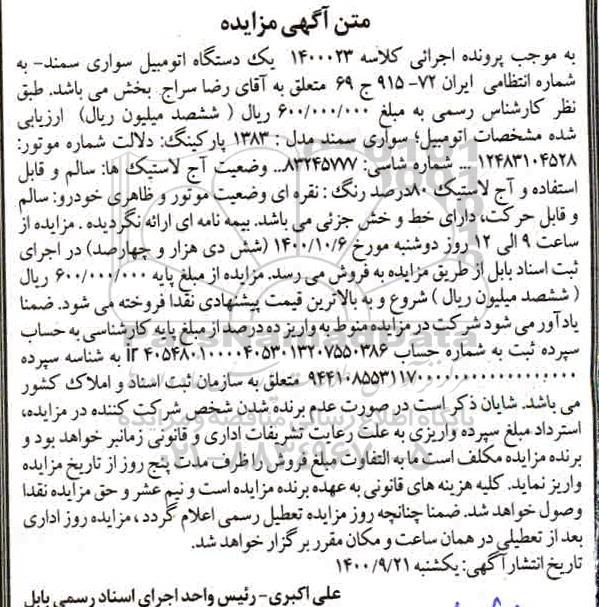 متن آگهی مزایده
به موجب پرونده اجرائی کلاسه ۱۴۰۰۰۲۳ یک دستگاه اتومبیل سواری سمند- به
شماره انتظامی ایران ۷۲- ۹۱۵ ج ۶۹ متعلق به آقای رضا سراج بخش می باشد. طبق
نظر کارشناس رسمی به مبلغ ۶۰۰/۰۰۰/۰۰۰ ریال ( ششصد میلیون ریال) ارزیابی
شده مشخصات اتومبیل؛ سواری سمند مدل : ۱۳۸۳ پارکینگ: دلالت شماره موتور:
۱۲۴۸۳۱۰۴۵۲۸... شماره شاسی: ۸۳۲۴۵۷۷۷... وضعیت آج لاستیک ها: سالم و قابل
استفاده و آج لاستیک ۸۰درصد رنگ : نقره ای وضعیت موتور و ظاهری خودرو: سالم
و قابل حرکت، دارای خط و خش جزئی می باشد. بیمه نامه ای ارائه نگردیده . مزایده از
ساعت ۹ الی ۱۲ روز دوشنبه مورخ ۱۴۰۰/۱۰/۶ (شش دی هزار و چهارصد) در اجرای
ثبت اسناد بابل از طریق مزایده به فروش می رسد. مزایده از مبلغ پایه ۶۰۰/۰۰۰/۰۰۰ ریال
( ششصد میلیون ریال ) شروع و به بالاترین قیمت پیشنهادی نقدا فروخته می شود. ضمنا
یادآور می شود شرکت در مزایده منوط به واریز ده درصد از مبلغ پایه کارشناسی به حساب
سپرده ثبت به شماره حساب ir ۴۰۵۴۸۰۱۰۰۰۰۴۰۵۳۰۱۳۲۰۷۵۵۰۳۸۶ به شناسه سپرده
متعلق به سازمان ثبت اسناد و املاک کشور
می باشد. شایان ذکر است در صورت عدم برنده شدن شخص شرکت کننده در مزایده،
استرداد مبلغ سپرده واریزی به علت رعایت تشریفات اداری و قانونی زمانبر خواهد بود و
برنده مزایده مکلف است ما به التفاوت مبلغ فروش را ظرف مدت پنج روز از تاریخ مزایده
واریز نماید. کلیه هزینه های قانونی به عهده برنده مزایده است و نیم عشر و حق مزایده نقدا
وصول خواهد شد. ضمنا چنانچه روز مزایده تعطیل رسمی اعلام گردد ، مزایده روز اداری
بعد از تعطیلی در همان ساعت و مکان مقرر برگزار خواهد شد.
تاریخ انتشار آگهی: یکشنبه ۱۴۰۰/۹/۲۱
علی اکبری- رئیس واحد اجرای اسناد رسمی بابل